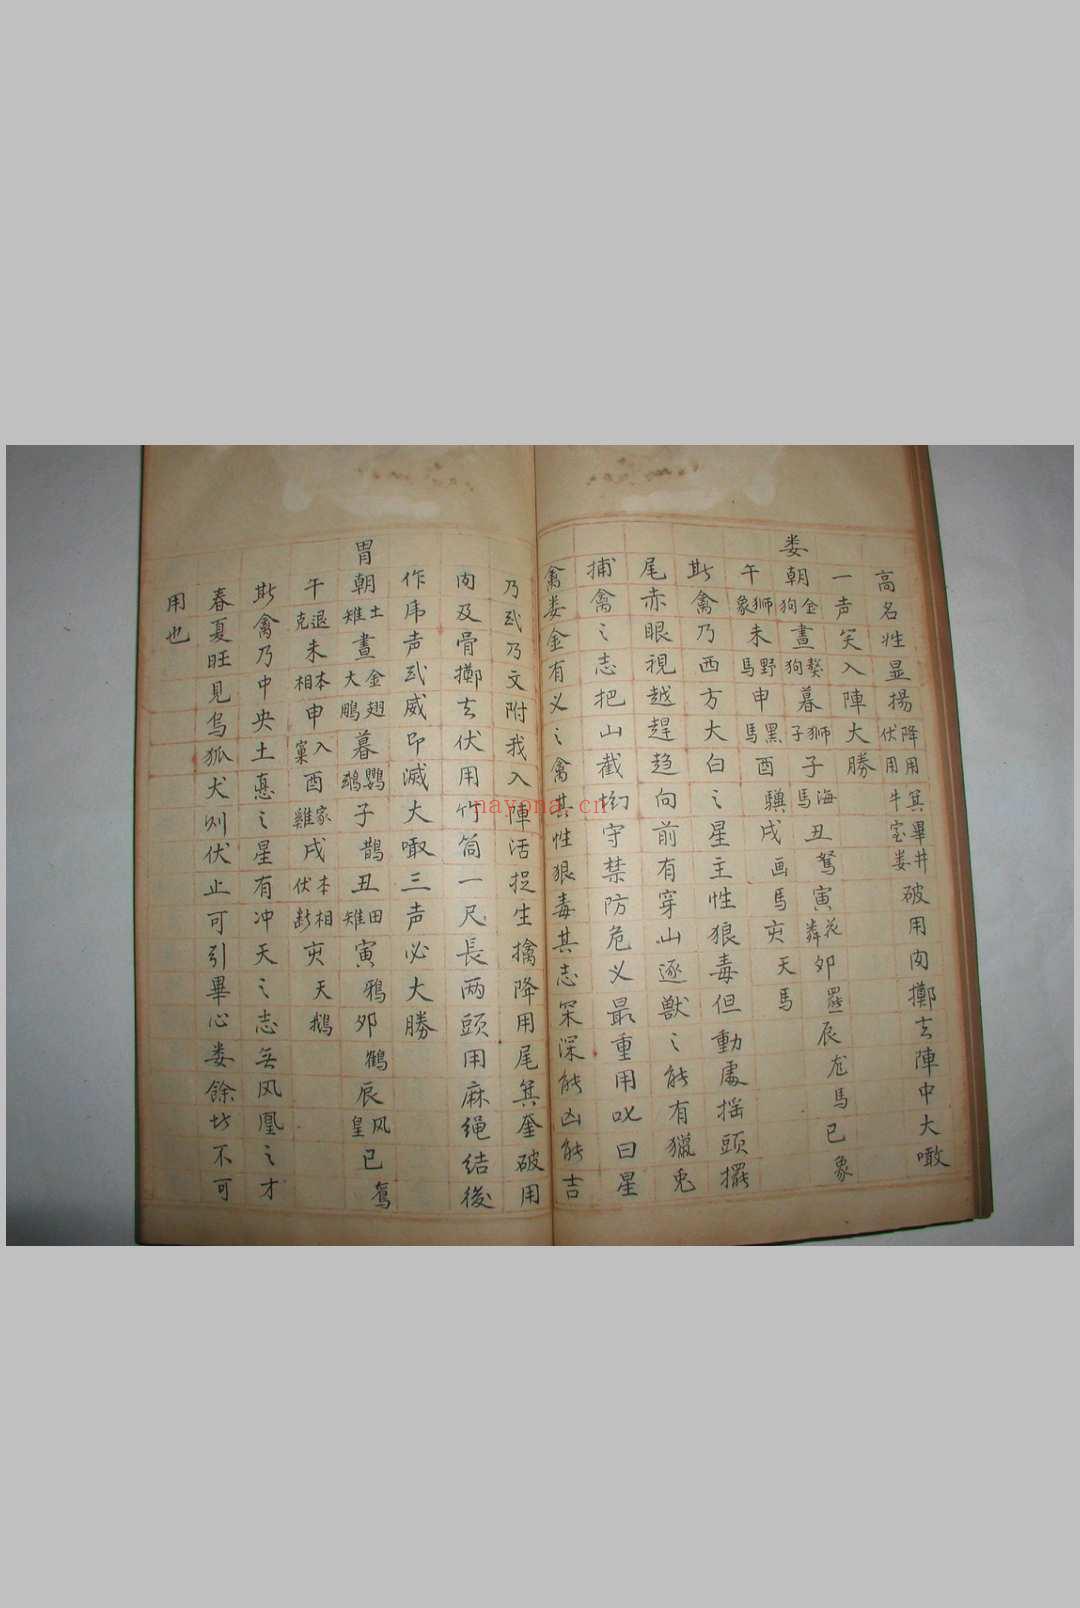 高名姓显揚降用伏用箕畢井牛室娄破用肉擲去陣中大噉
一声笑入陣大勝
娄朝金狗晝婺狗暮獅子子海馬丑駑寅花粦卯羆辰尨馬巳象
午獅象未野馬申黑馬酉驥戌画馬亥天馬
此禽乃西方大白之星主性狼毒但動處摇頭擺
尾赤眼視越趕趋向前有穿山逐獸之能有獵兎
捕禽之志把山截拗守禁防危义最重用吆曰星
禽娄金有义之禽其性狼毒其志罙深能凶能吉
乃武乃文附我入陣活捉生擒降用尾箕奎破用
肉及骨擲去伏用竹筒一尺長两頭用麻绳結後
作馬声武威即滅大噉三声必大勝
胃朝土雉晝金翅大鵰暮鸚鵡子鵲丑田雉寅鴉卯鶴辰风皇巳鸳
午退克未本相申入窠酉家雞戌本相伏断亥天鵝
斯禽乃中央土惪之星有冲天之志無风凰之才
春夏旺見烏狐犬则伏止可引畢心娄餘坊不可
用也
nayona.cn